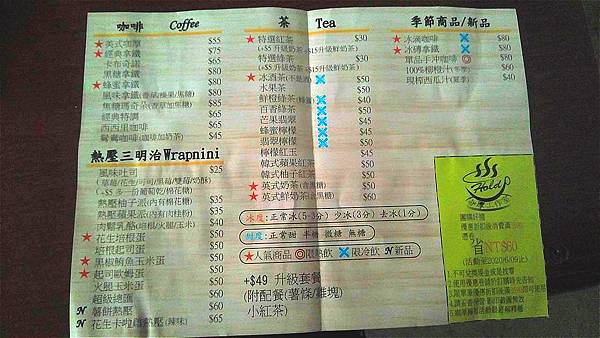 咖啡 Coffee
★美式咖啡 $55
★經典拿鐵 $75
卡布奇諾 $65
黑糖拿鐵 $80
★蜂蜜拿鐵 $80
風味拿鐵(香草/榛果/焦糖) $80
焦糖瑪奇朵(香草加焦糖) $80
經典特調 $65
西西里咖啡 $65
鴛鴦咖啡(咖啡加奶茶) $45
熱壓三明治Wrapnini
風味吐司 $25
(草莓/花生/可可/黑莓/雙莓/奶酥)
(+$5 多一份葡萄乾/棉花糖)
熱壓柚子派(內有棉花糖) $35
熱壓蘋果派(內有肉桂粉) $35
肉鬆乳酪(培根/火腿/玉米) $40
★花生培根蛋 $50
培根起司蛋 $50
★黑椒鮪魚玉米蛋 $50
★起司歐姆蛋 $50
火腿玉米蛋 $50
超級總匯 $60
N 薯餅熱壓 $60
N 花生卡啦雞熱壓(辣味) $65
茶 Tea
★特選紅茶 $30
(+$5升級奶茶 +$15升級鮮奶茶)
特選綠茶 $30
(+$5升級奶茶 +$15升級鮮奶茶)
★冰酒茶(不是酒) $50
水果茶 $50
鮮橙綠茶(蜂蜜) $40
百香綠茶 $50
芒果翡翠 $45
蜂蜜檸檬 $50
翡翠檸檬 $50
檸檬紅玉 $45
韓式蘋果紅茶 $50
韓式柚子紅茶 $50
★英式奶茶(含黑糖) $50
★英式鮮奶茶(含黑糖) $60
冰度:正常冰(5-3分) 少冰(3分) 去冰(1分)
甜度:正常甜 半糖 微糖 無糖
★人氣商品 ◎限熱飲 ✖限冷飲 N新品
+$49 升級套餐
(附配餐(薯條/雞塊)
小紅茶)
季節商品/新品
★冰滴咖啡 $80
★冰磚拿鐵 $80
單品手沖咖啡 ◎ $80
100%柳橙汁(冬季) $60
現榨西瓜汁(夏季) $40
Hold
團購好禮
省NT$60